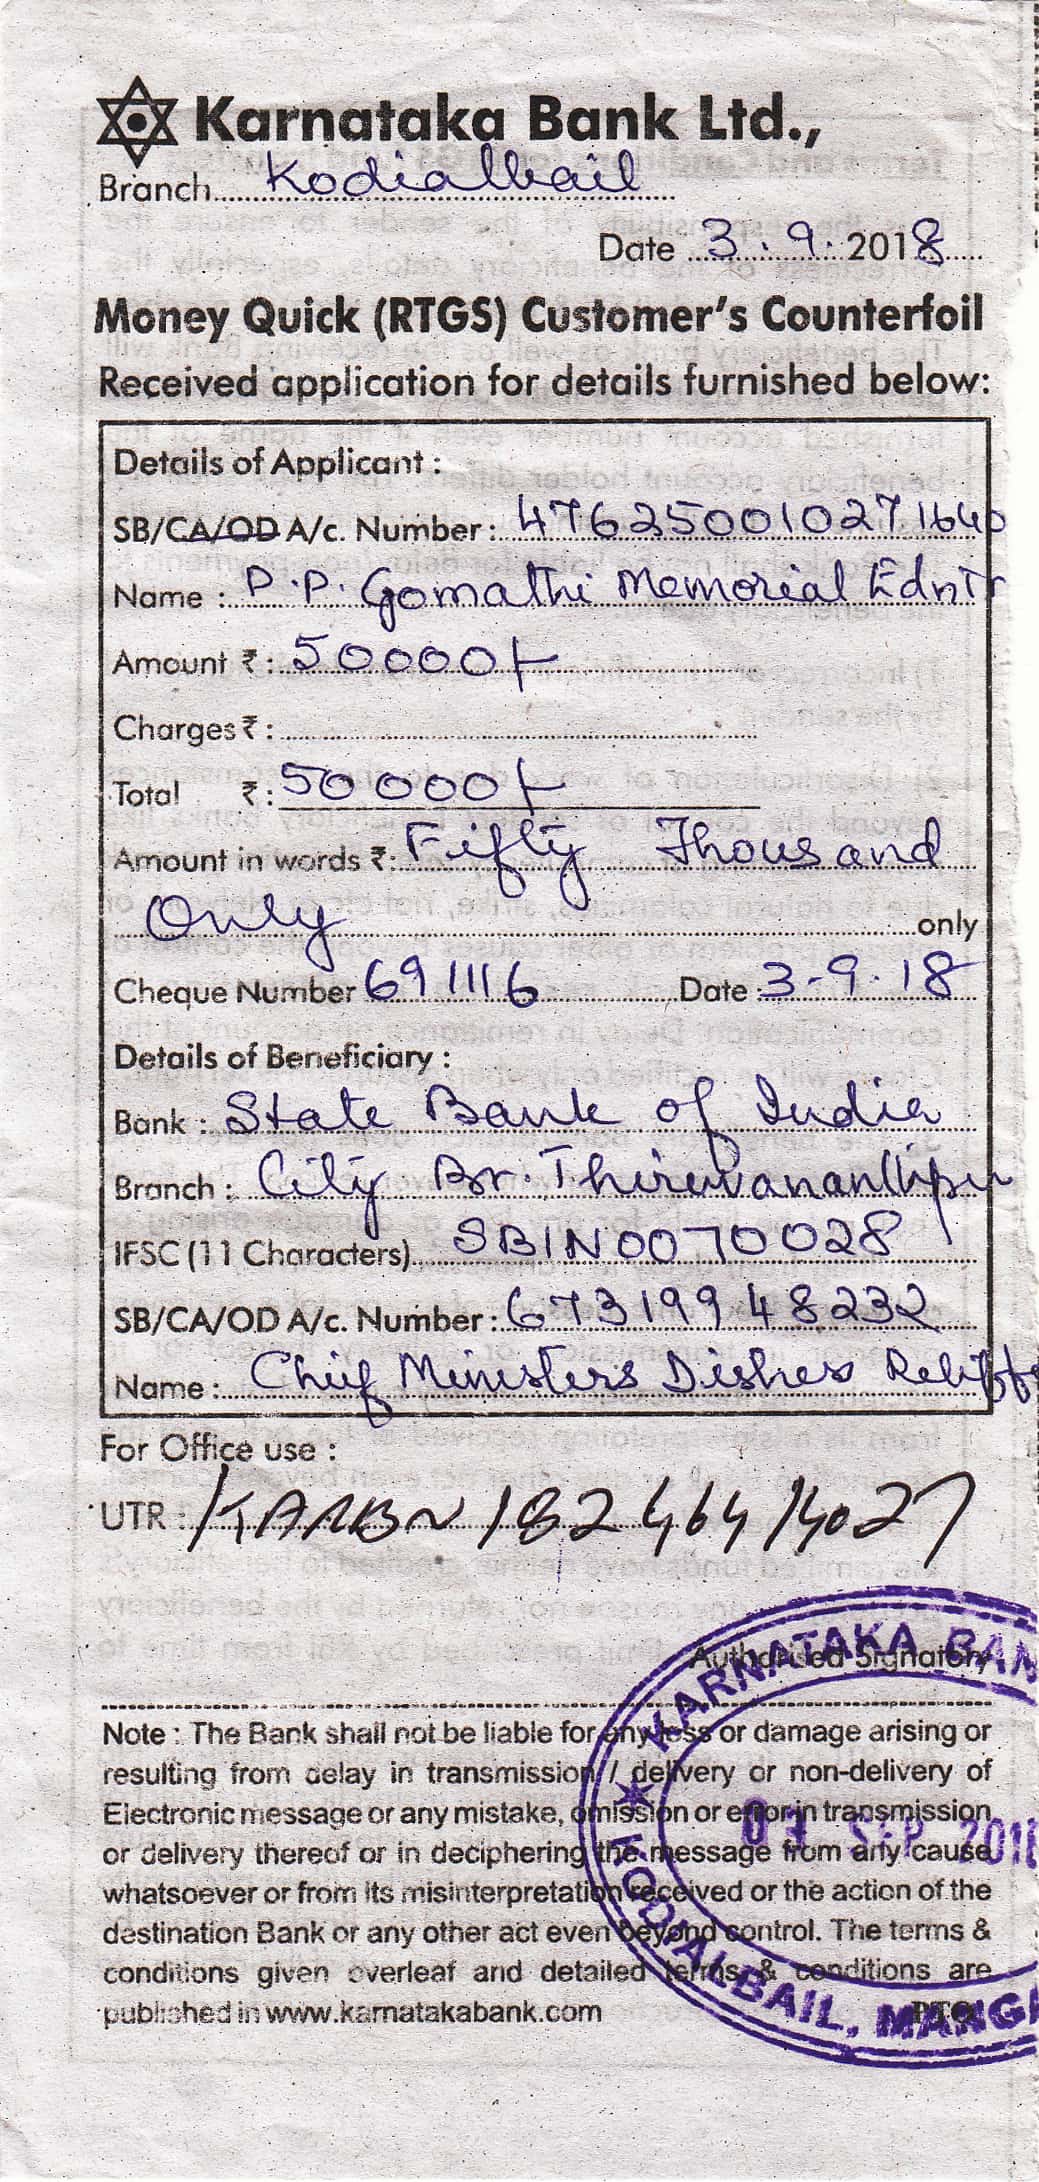 Karnataka Bank Ltd.,
Branch Kodialbail
Date 3.9.2018
Money Quick (RTGS) Customer's Counterfoil
Received application for details furnished below:
Details of Applicant :
SB/CA/OD A/c. Number : 4762500102711640
Name : P.P. Gomathi Memorial EdnTr
Amount ₹ : 50000/-
Charges ₹ :
Total ₹ : 50000/-
Amount in words ₹: Fifty Thousand
Only only
Cheque Number 691116 Date 3-9.18
Details of Beneficiary :
Bank : State Bank of India
Branch : City Br. Thiruvananthpu
IFSC (11 Characters) SBIN0070028
SB/CA/OD A/c. Number : 67319948232
Name : Chief Ministers Distress
For Office use :
UTR : KARBN18246414027
Authorised Signatory
Note : The Bank shall not be liable for any loss or damage arising or
resulting from delay in transmission / delivery or non-delivery of
Electronic message or any mistake, omission or error in transmission
or delivery thereof or in deciphering the message from any cause
whatsoever or from its misinterpretation received or the action of the
destination Bank or any other act even beyond control. The terms &
conditions given overleaf and detailed terms & conditions are
published in www.karnatakabank.com PTO
KARNATAKA BAN
03 SEP 201
KODIALBAIL, MANGA